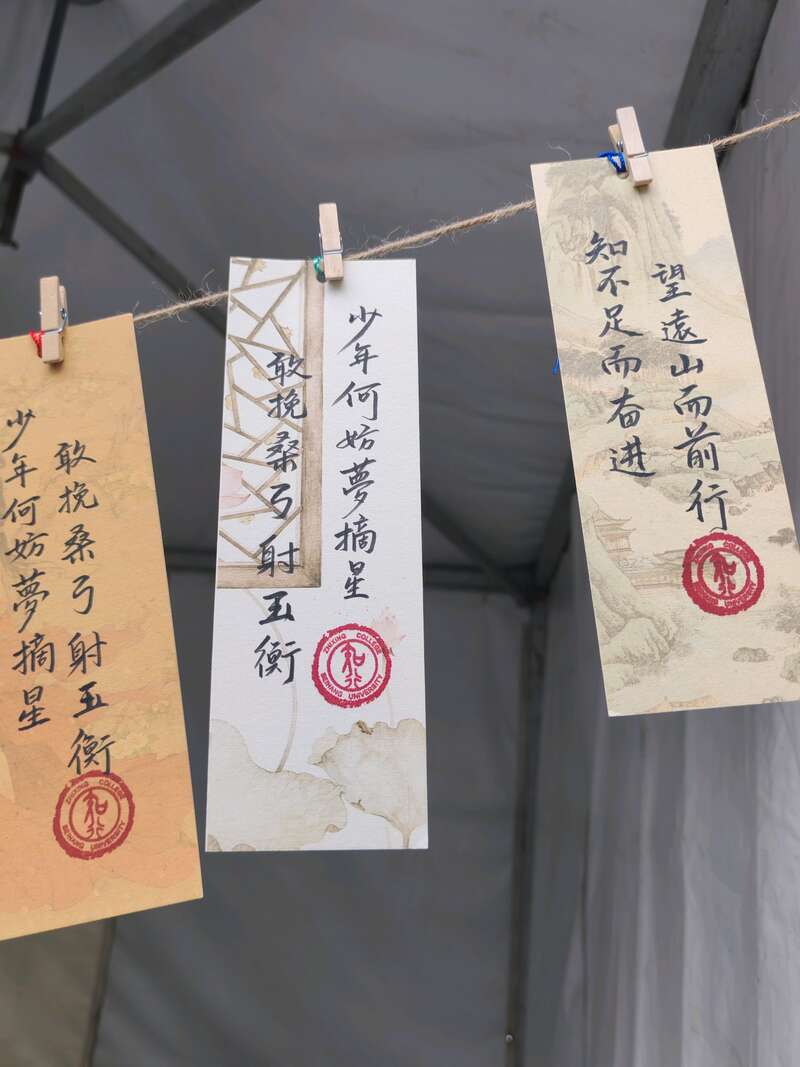 敢挽桑弓射玉衡
少年何妨夢摘星
ZHIXING COLLEGE
知行
BEIHANG UNIVERSITY
少年何妨夢摘星
敢挽桑弓射玉衡
ZHIXING COLLEGE
知行
BEIHANG UNIVERSITY
望遠山而前行
知不足而奋进
ZHIXING COLLEGE
知行
BEIHANG UNIVERSITY